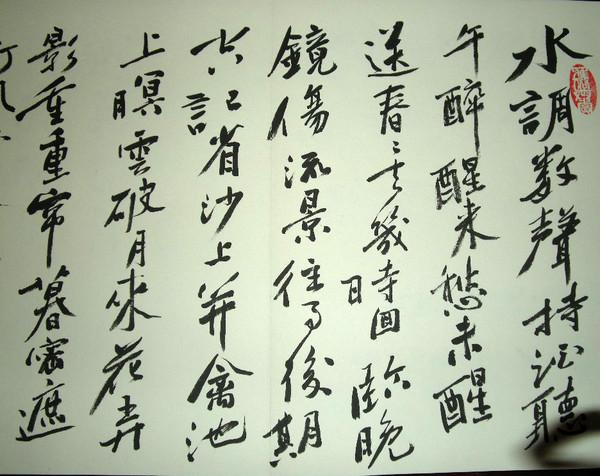 水調数聲持酒聽
午醉醒来愁未醒
送春々去幾時回臨晚
鏡傷流景往事後期
空記省沙上并禽池
上瞑雲破月來花弄
影重重帘幕密遮